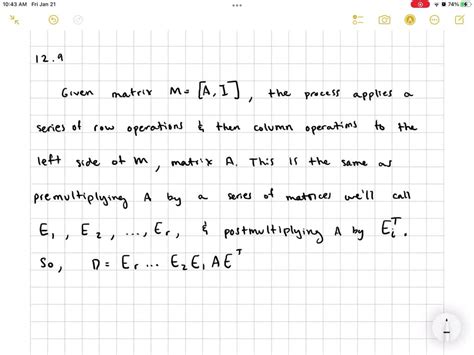 10:43 AM Fri Jan 21
74%
12.9
Given matrix M = [A, I], the process applies a
series of row operations & then column operatims to the
left side of M, matrix A. This is the same as
premultiplying A by a series of matrices we'll call
E₁, E₂, ..., Eᵣ, & postmultiplying A by Eᵢᵀ.
So, D = Eᵣ ... E₂ E₁ A Eᵀ